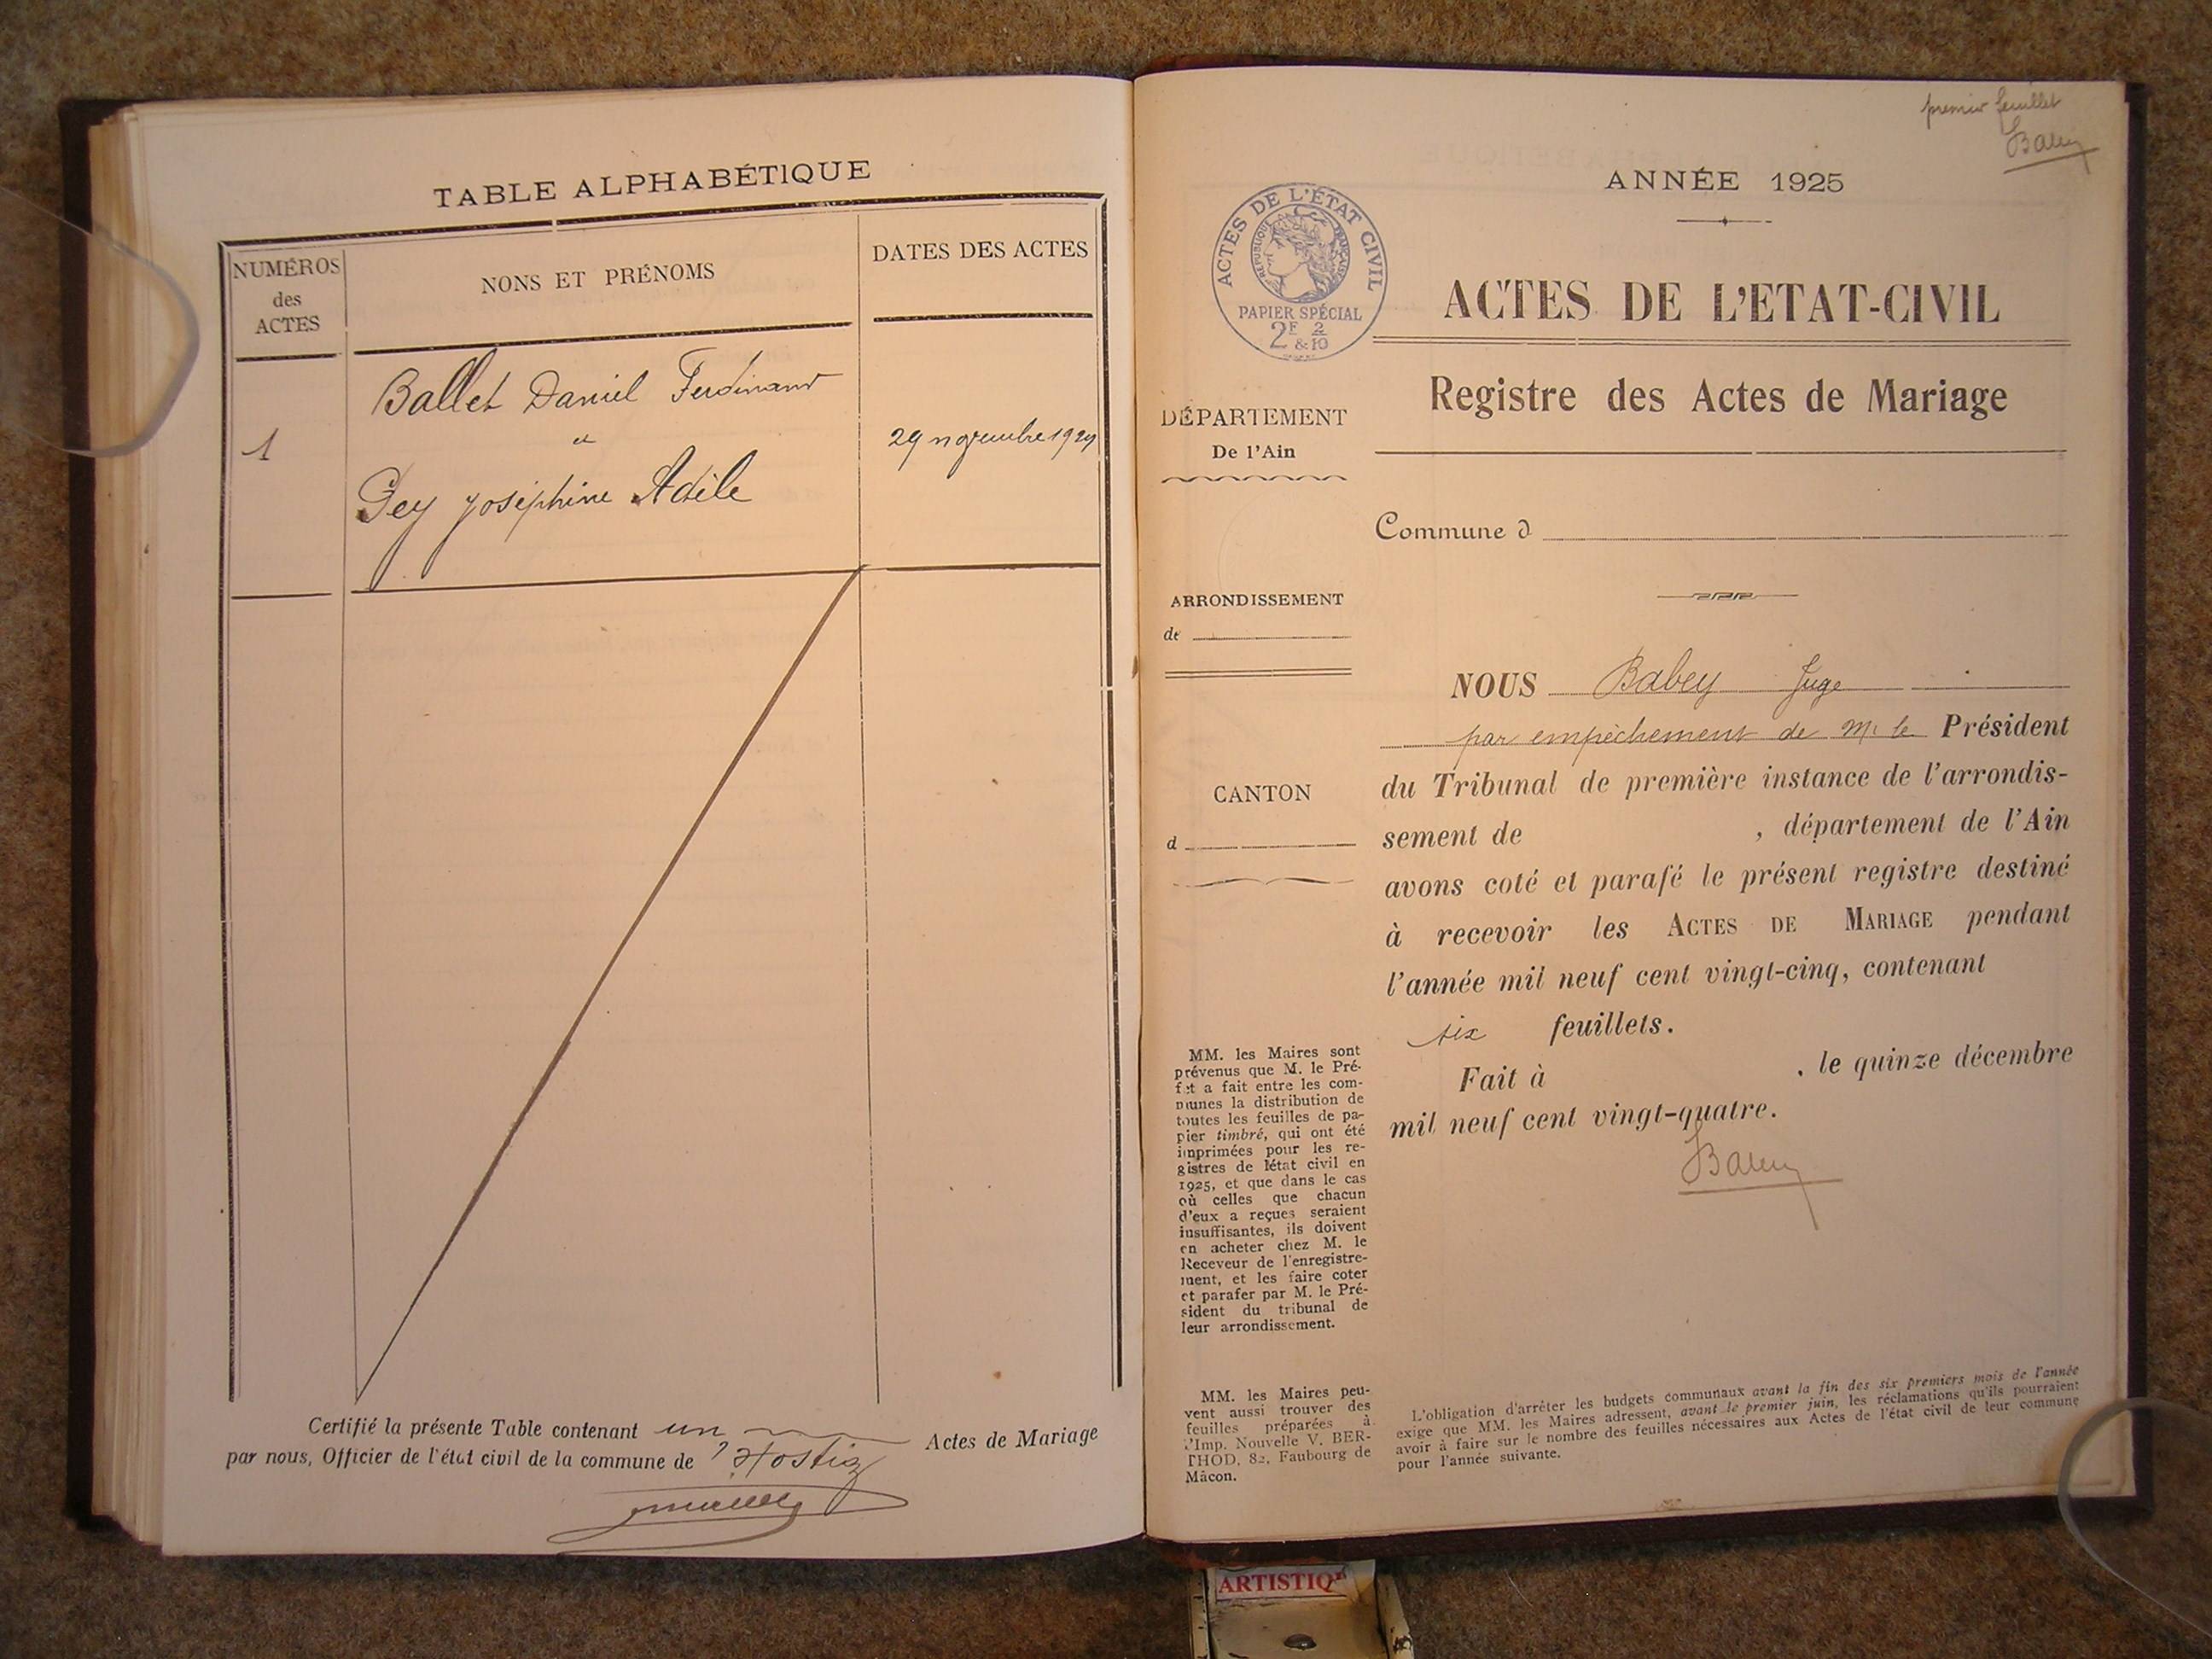 TABLE ALPHABÉTIQUE
NUMÉROS
des
ACTES
NONS ET PRÉNOMS
DATES DES ACTES
Ballet Daniel Ferdinand
et
1
29 novembre 1924
Gey Joséphine Adèle
Certifié la présente Table contenant un Actes de Mariage
par nous, Officier de l'état civil de la commune de d'Hostiaz
premier feuillet
Babey
ANNÉE 1925
ACTES DE L'ÉTAT CIVIL
RÉPUBLIQUE FRANÇAISE
PAPIER SPÉCIAL
2F 2
& 10
ACTES DE L'ETAT-CIVIL
Registre des Actes de Mariage
DÉPARTEMENT
De l'Ain
Commune d
ARRONDISSEMENT
de
CANTON
d
NOUS Babey Juge
par empêchement de M. le Président
du Tribunal de première instance de l'arrondis-
sement de , département de l'Ain
avons coté et parafé le présent registre destiné
à recevoir les ACTES DE MARIAGE pendant
l'année mil neuf cent vingt-cinq, contenant
six feuillets.
Fait à , le quinze décembre
mil neuf cent vingt-quatre.
Babey
MM. les Maires sont
prévenus que M. le Pré-
fet a fait entre les com-
munes la distribution de
toutes les feuilles de pa-
pier timbré, qui ont été
imprimées pour les re-
gistres de létat civil en
1925, et que dans le cas
où celles que chacun
d'eux a reçues seraient
insuffisantes, ils doivent
en acheter chez M. le
Receveur de l'enregistre-
ment, et les faire coter
et parafer par M. le Pré-
sident du tribunal de
leur arrondissement.
MM. les Maires peu-
vent aussi trouver des
feuilles préparées à
l'Imp. Nouvelle V. BER-
THOD, 82, Faubourg de
Mâcon.
L'obligation d'arrêter les budgets communaux avant la fin des six premiers mois de l'année
exige que MM. les Maires adressent, avant le premier juin, les réclamations qu'ils pourraient
avoir à faire sur le nombre des feuilles nécessaires aux Actes de l'état civil de leur commune
pour l'année suivante.
ARTISTIQ